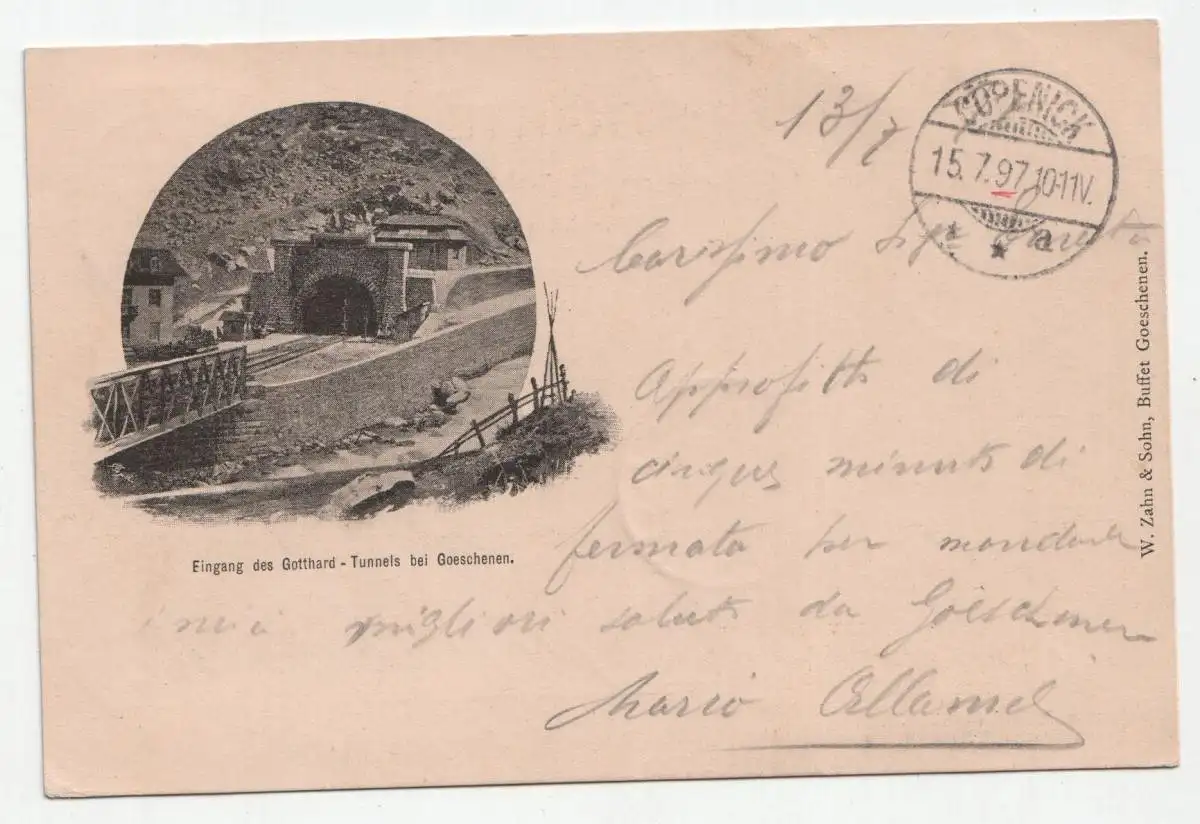 13/7
CÖPENICK
15.7.97. 10-11V.
* a
Carissimo Sigr
Approfitto di
cinque minuti di
fermata per mandarle
i miei migliori saluti da Göschenen
Mario
Eingang des Gotthard - Tunnels bei Goeschenen.
W. Zahn & Sohn, Buffet Goeschenen.